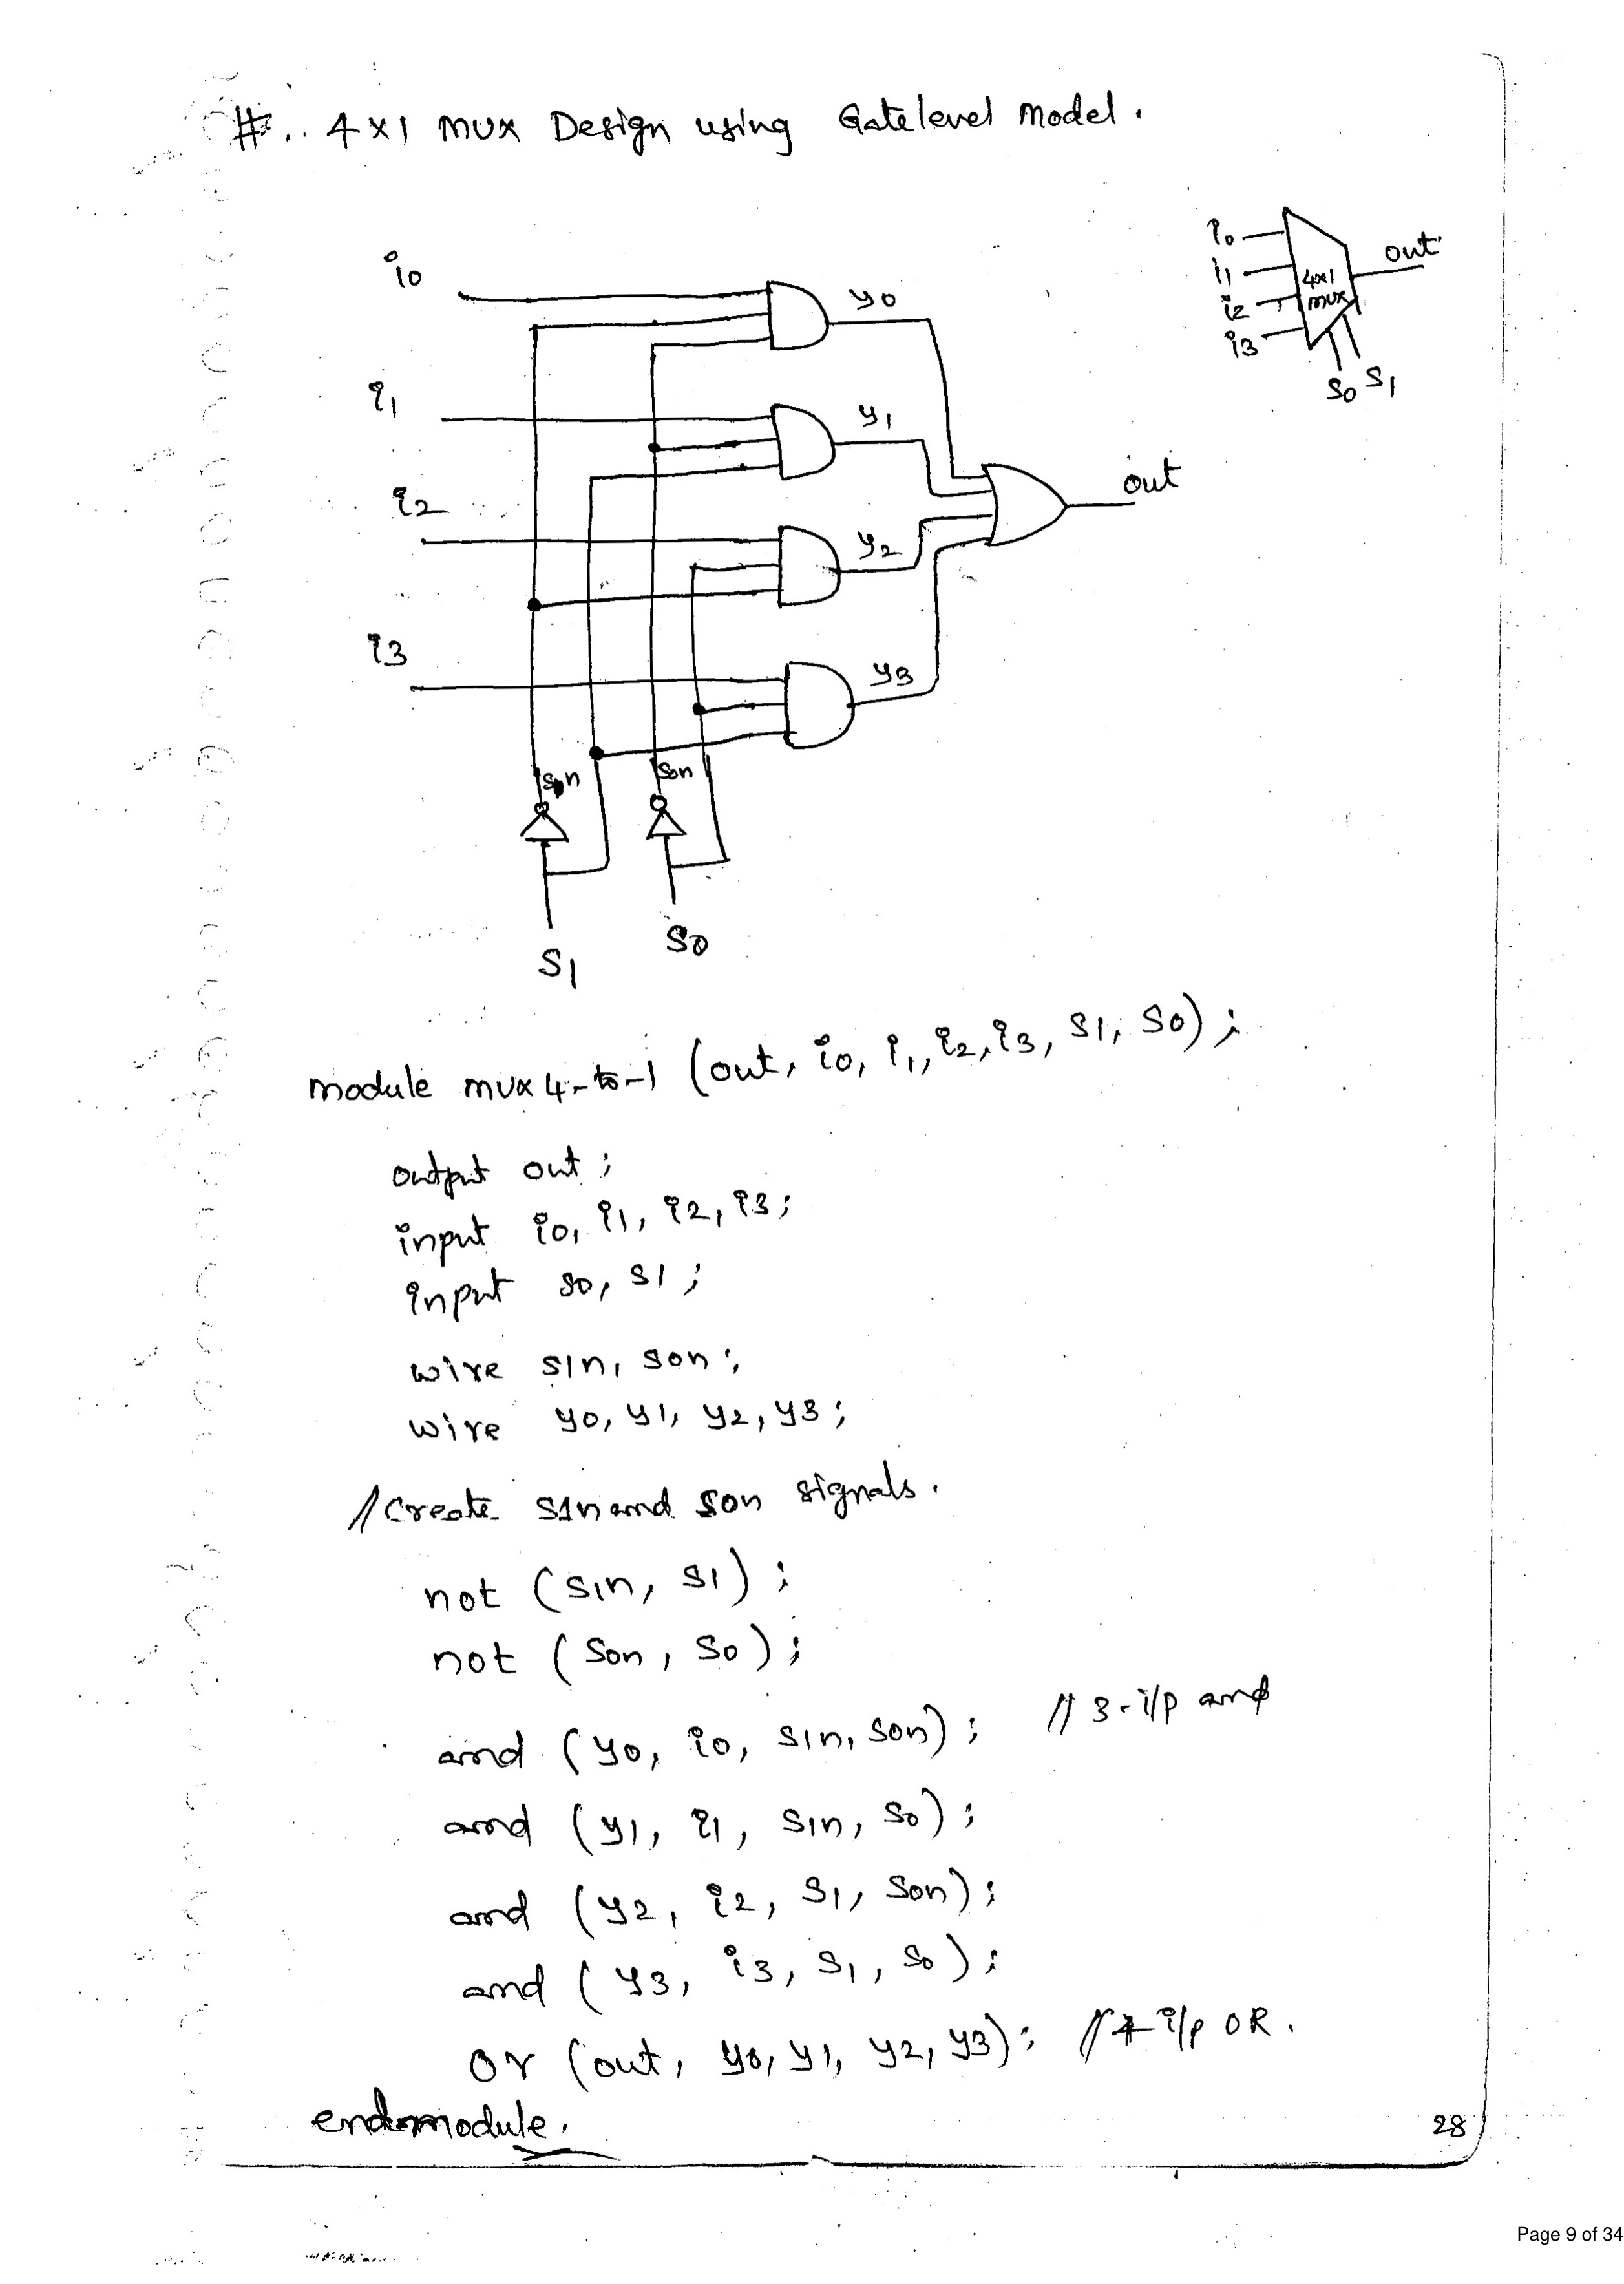 #.. 4x1 mux Design using Gatelevel Model.
i0
i1
i2
i3
4x1
mux
out
S0 S1
i0
y0
i1
y1
i2
y2
out
i3
y3
S1n
S0n
S1
S0
module mux 4-to-1 (out, i0, i1, i2, i3, S1, S0) ;
output out ;
input i0, i1, i2, i3;
input s0, s1 ;
wire s1n, s0n ;
wire y0, y1, y2, y3 ;
// Create s1n and s0n signals.
not (s1n, s1) ;
not (s0n, s0) ;
and (y0, i0, s1n, s0n) ; // 3-i/p and
and (y1, i1, s1n, s0) ;
and (y2, i2, s1, s0n) ;
and (y3, i3, s1, s0) ;
or (out, y0, y1, y2, y3) ; // 4 i/p OR.
endmodule.
28
Page 9 of 34